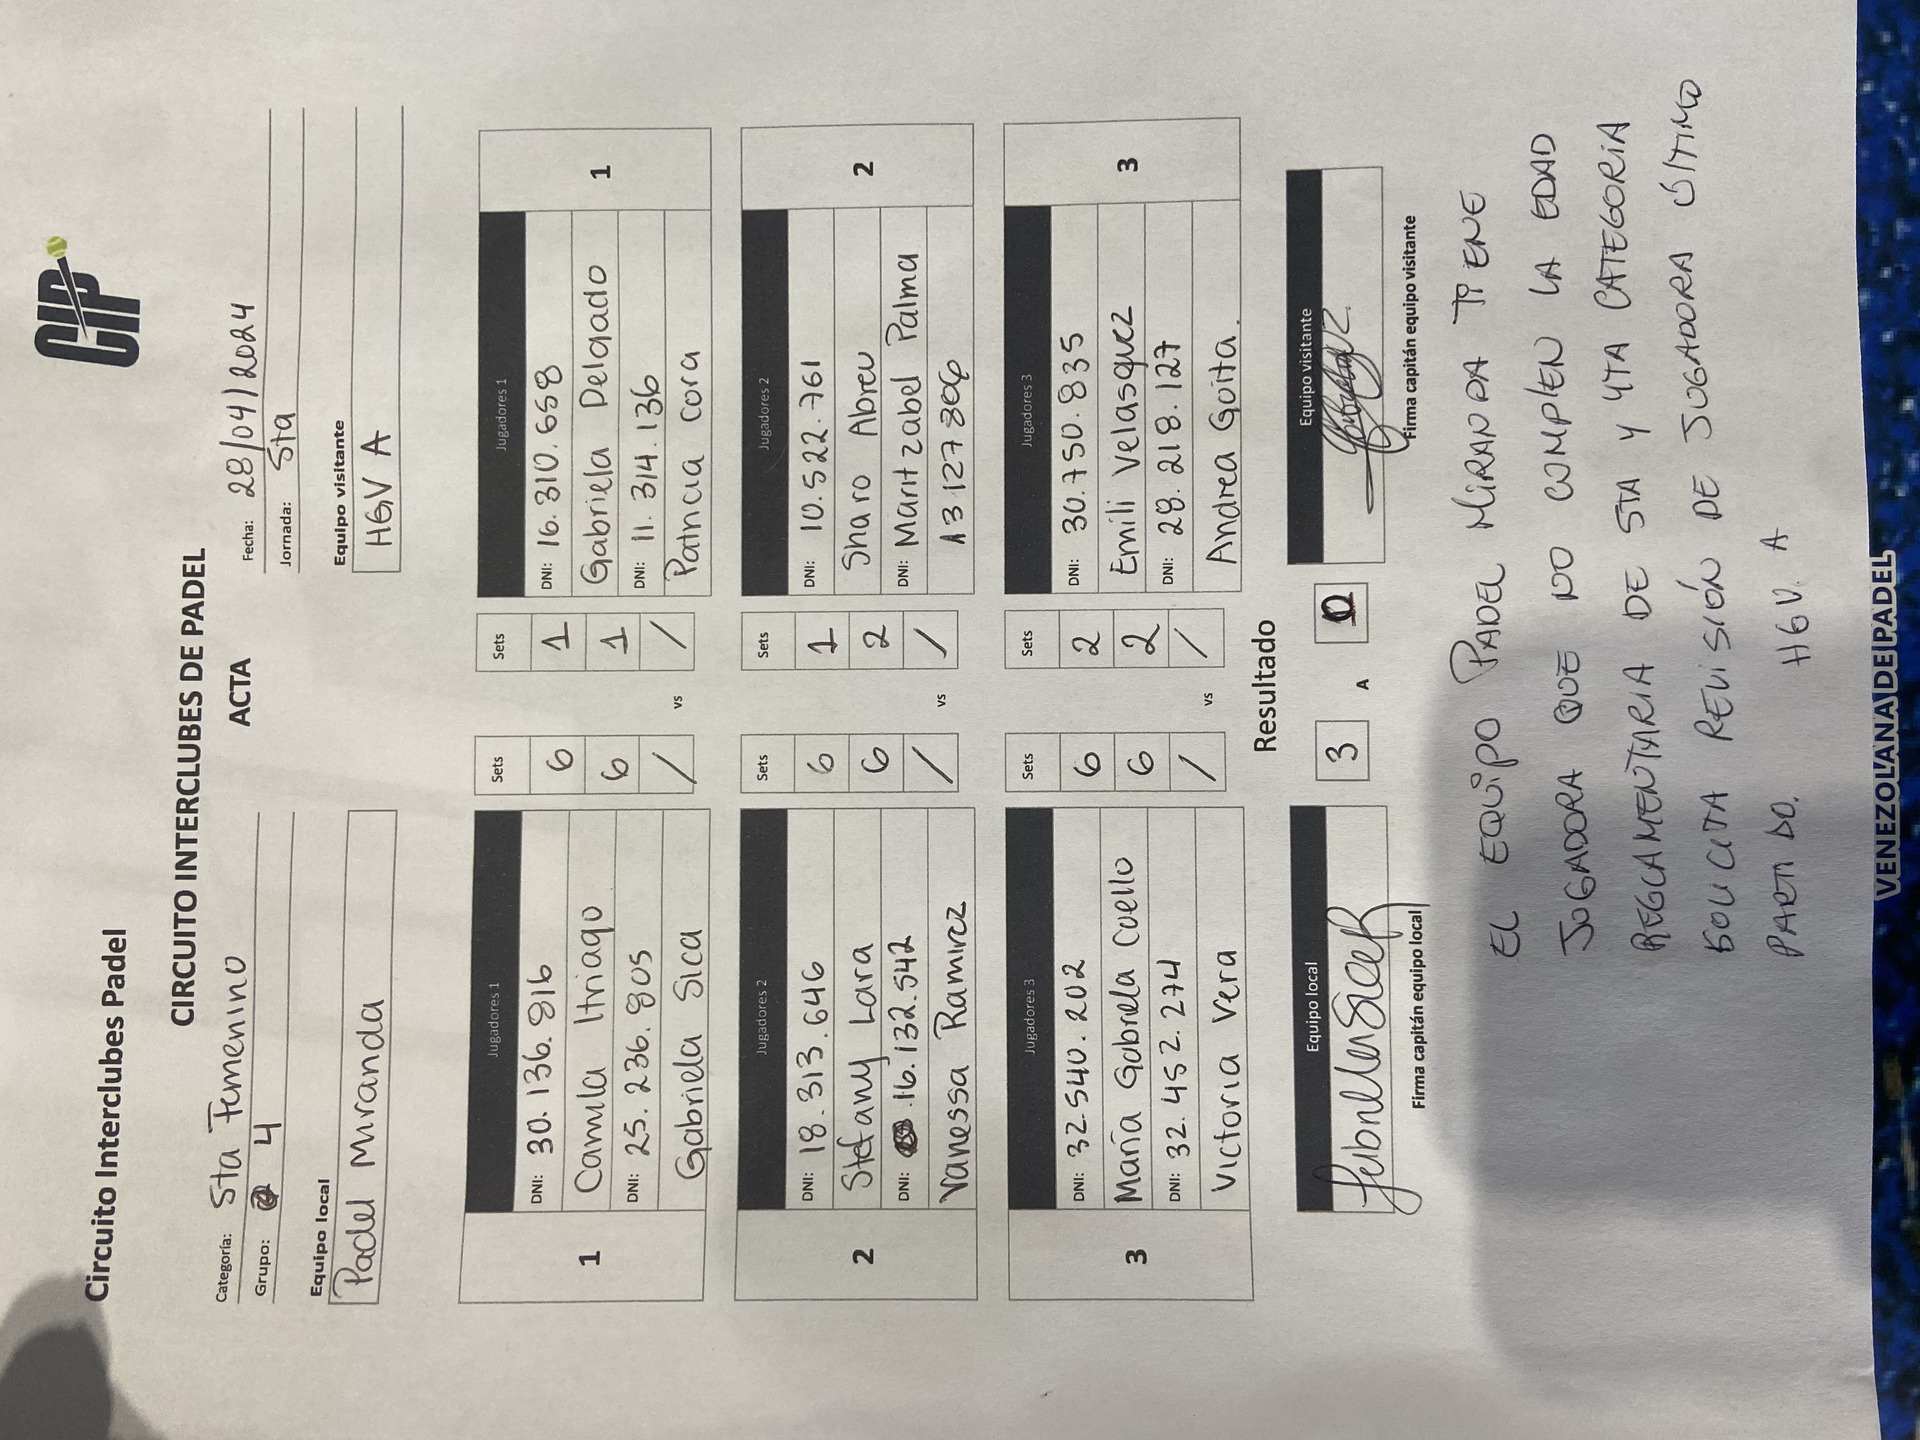 Circuito Interclubes Padel
CIP
CIRCUITO INTERCLUBES DE PADEL
ACTA
Categoría: 5ta Femenino
Fecha: 28/04/2024
Grupo: 4
Jornada: 5ta
Equipo local
Equipo visitante
Padel Miranda
HGV A
Jugadores 1
Sets
Sets
Jugadores 1
1
DNI: 30.136.816
6
1
DNI: 16.310.658
1
Camila Itriago
6
1
Gabriela Delgado
DNI: 25.236.805
/
vs
/
DNI: 11.314.136
Gabriela Sica
Patricia Cora
Jugadores 2
Sets
Sets
Jugadores 2
2
DNI: 18.313.646
6
1
DNI: 10.522.761
2
Stefany Lara
6
2
Sharo Abreu
DNI: 16.132.542
/
vs
/
DNI: Maritzabel Palma
Vanessa Ramirez
13.127306
Jugadores 3
Sets
Sets
Jugadores 3
3
DNI: 32.540.202
6
2
DNI: 30.750.835
3
María Gabriela Cuello
6
2
Emili Velasquez
DNI: 32.452.274
/
vs
/
DNI: 28.218.127
Victoria Vera
Andrea Goita.
Resultado
Equipo local
3
A
0
Equipo visitante
Firma capitán equipo local
Firma capitán equipo visitante
EL EQUIPO PADEL MIRANDA TIENE
JUGADORA QUE NO COMPLEN LA EDAD
REGLAMENTARIA DE 5TA Y 4TA CATEGORIA
SOLICITA REVISIÓN DE JUGADORA ÚLTIMO
PARTIDO. HGV. A
VENEZOLANA DE PADEL